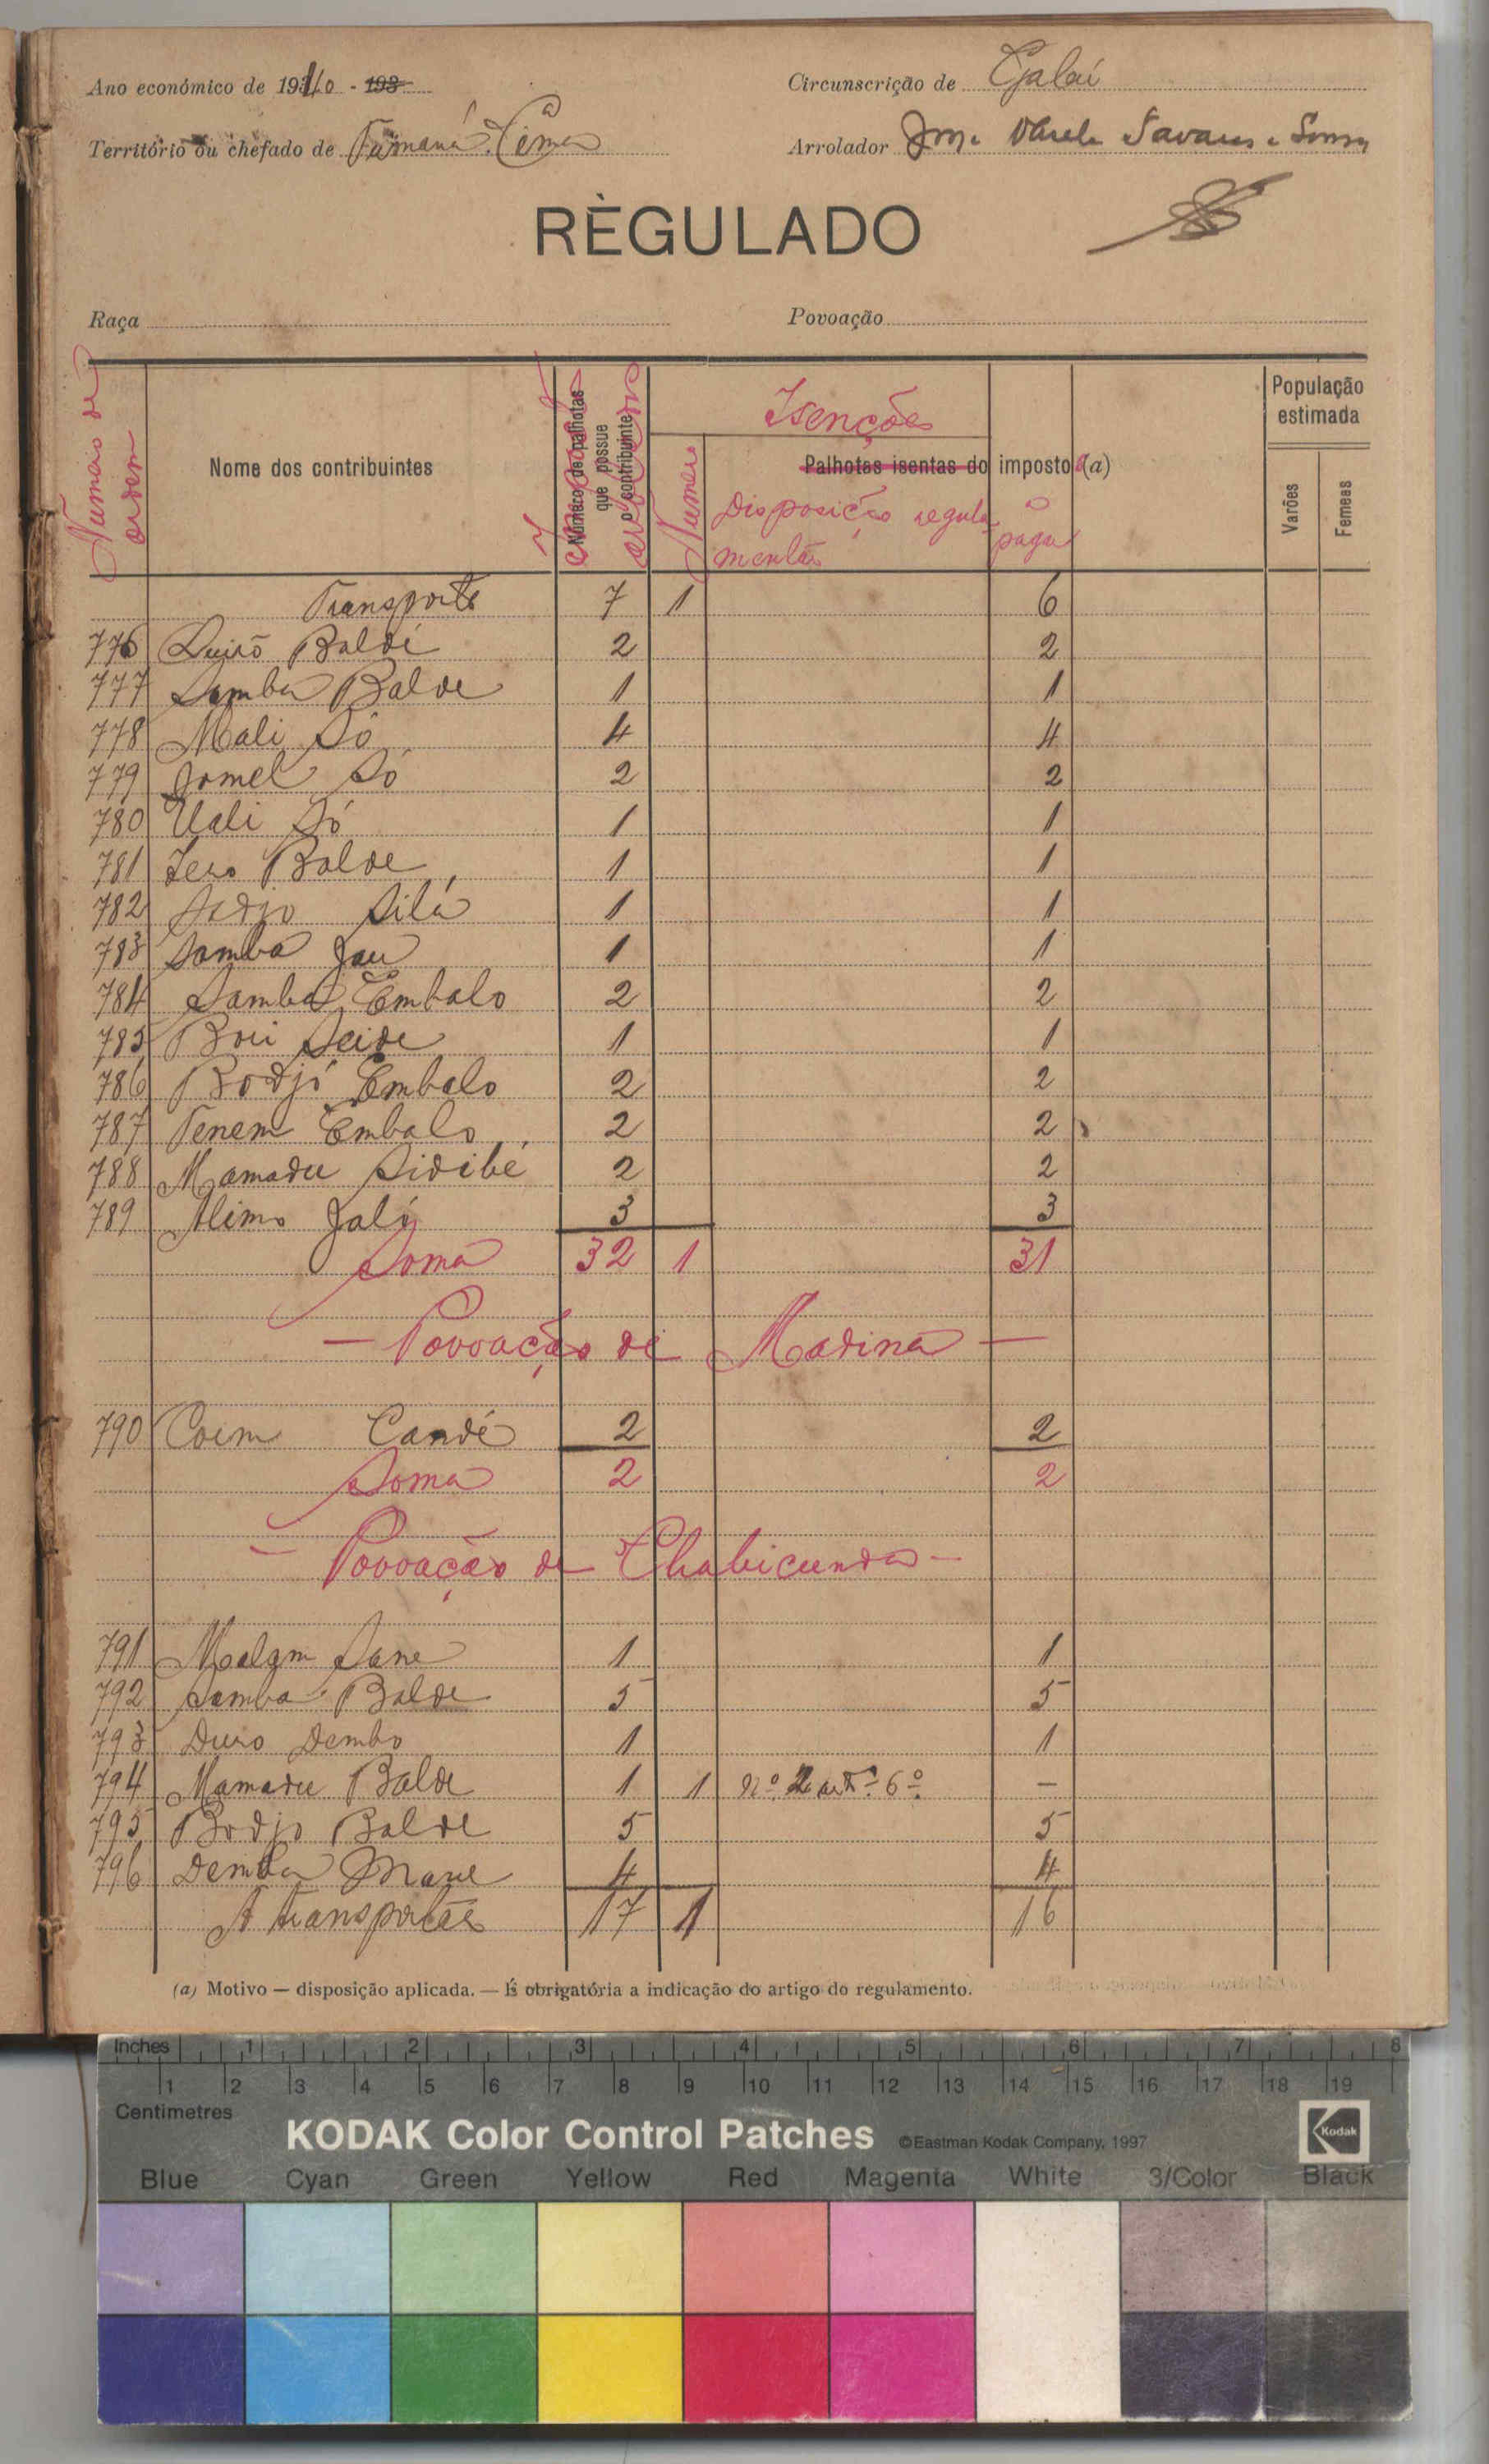 Ano económico de 1940 - 193
Circunscrição de Galaí
Território ou chefado de Tumaná Cima
Arrolador José Varela Tavares e Sousa
RÈGULADO
Raça
Povoação
Numero de ordem
Nome dos contribuintes
Número de palhotas que possue o contribuinte
Isenções
Numero
Palhotas isentas do imposto (a)
Disposição regulamentar
a pagar
População estimada
Varões
Femeas
Transporte 7 1 6
776 Quirō Baldé 2 2
777 Samba Balde 1 1
778 Mali Só 4 4
779 Jomel Só 2 2
780 Uali Só 1 1
781 Iero Balde 1 1
782 Sadjo Silá 1 1
783 Samba Jau 1 1
784 Samba Embalo 2 2
785 Boi Seide 1 1
786 Bodjó Embalo 2 2
787 Tenem Embalo 2 2
788 Mamadu Sidibé 2 2
789 Alimo Jaló 3 3
Soma 32 1 31
— Povoação de Madina —
790 Coem Candé 2 2
Soma 2 2
— Povoação de Chabicunda —
791 Malam Sane 1 1
792 Samba Balde 5 5
793 Duro Dembo 1 1
794 Mamadu Balde 1 1 nº 2 artº 6º —
795 Bodjo Balde 5 5
796 Demba Mane 4 4
A transportar 17 1 16
(a) Motivo — disposição aplicada. — É obrigatória a indicação do artigo do regulamento.
Inches 1 2 3 4 5 6 7 8
1 2 3 4 5 6 7 8 9 10 11 12 13 14 15 16 17 18 19
Centimetres
KODAK Color Control Patches ©Eastman Kodak Company, 1997 Kodak
Blue Cyan Green Yellow Red Magenta White 3/Color Black